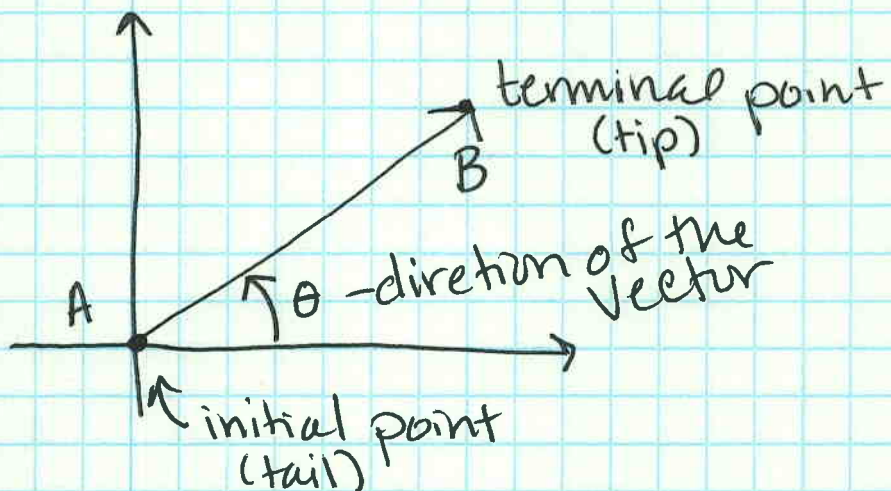 terminal point
(tip)
B
A
θ -diretion of the
vector
initial point
(tail)